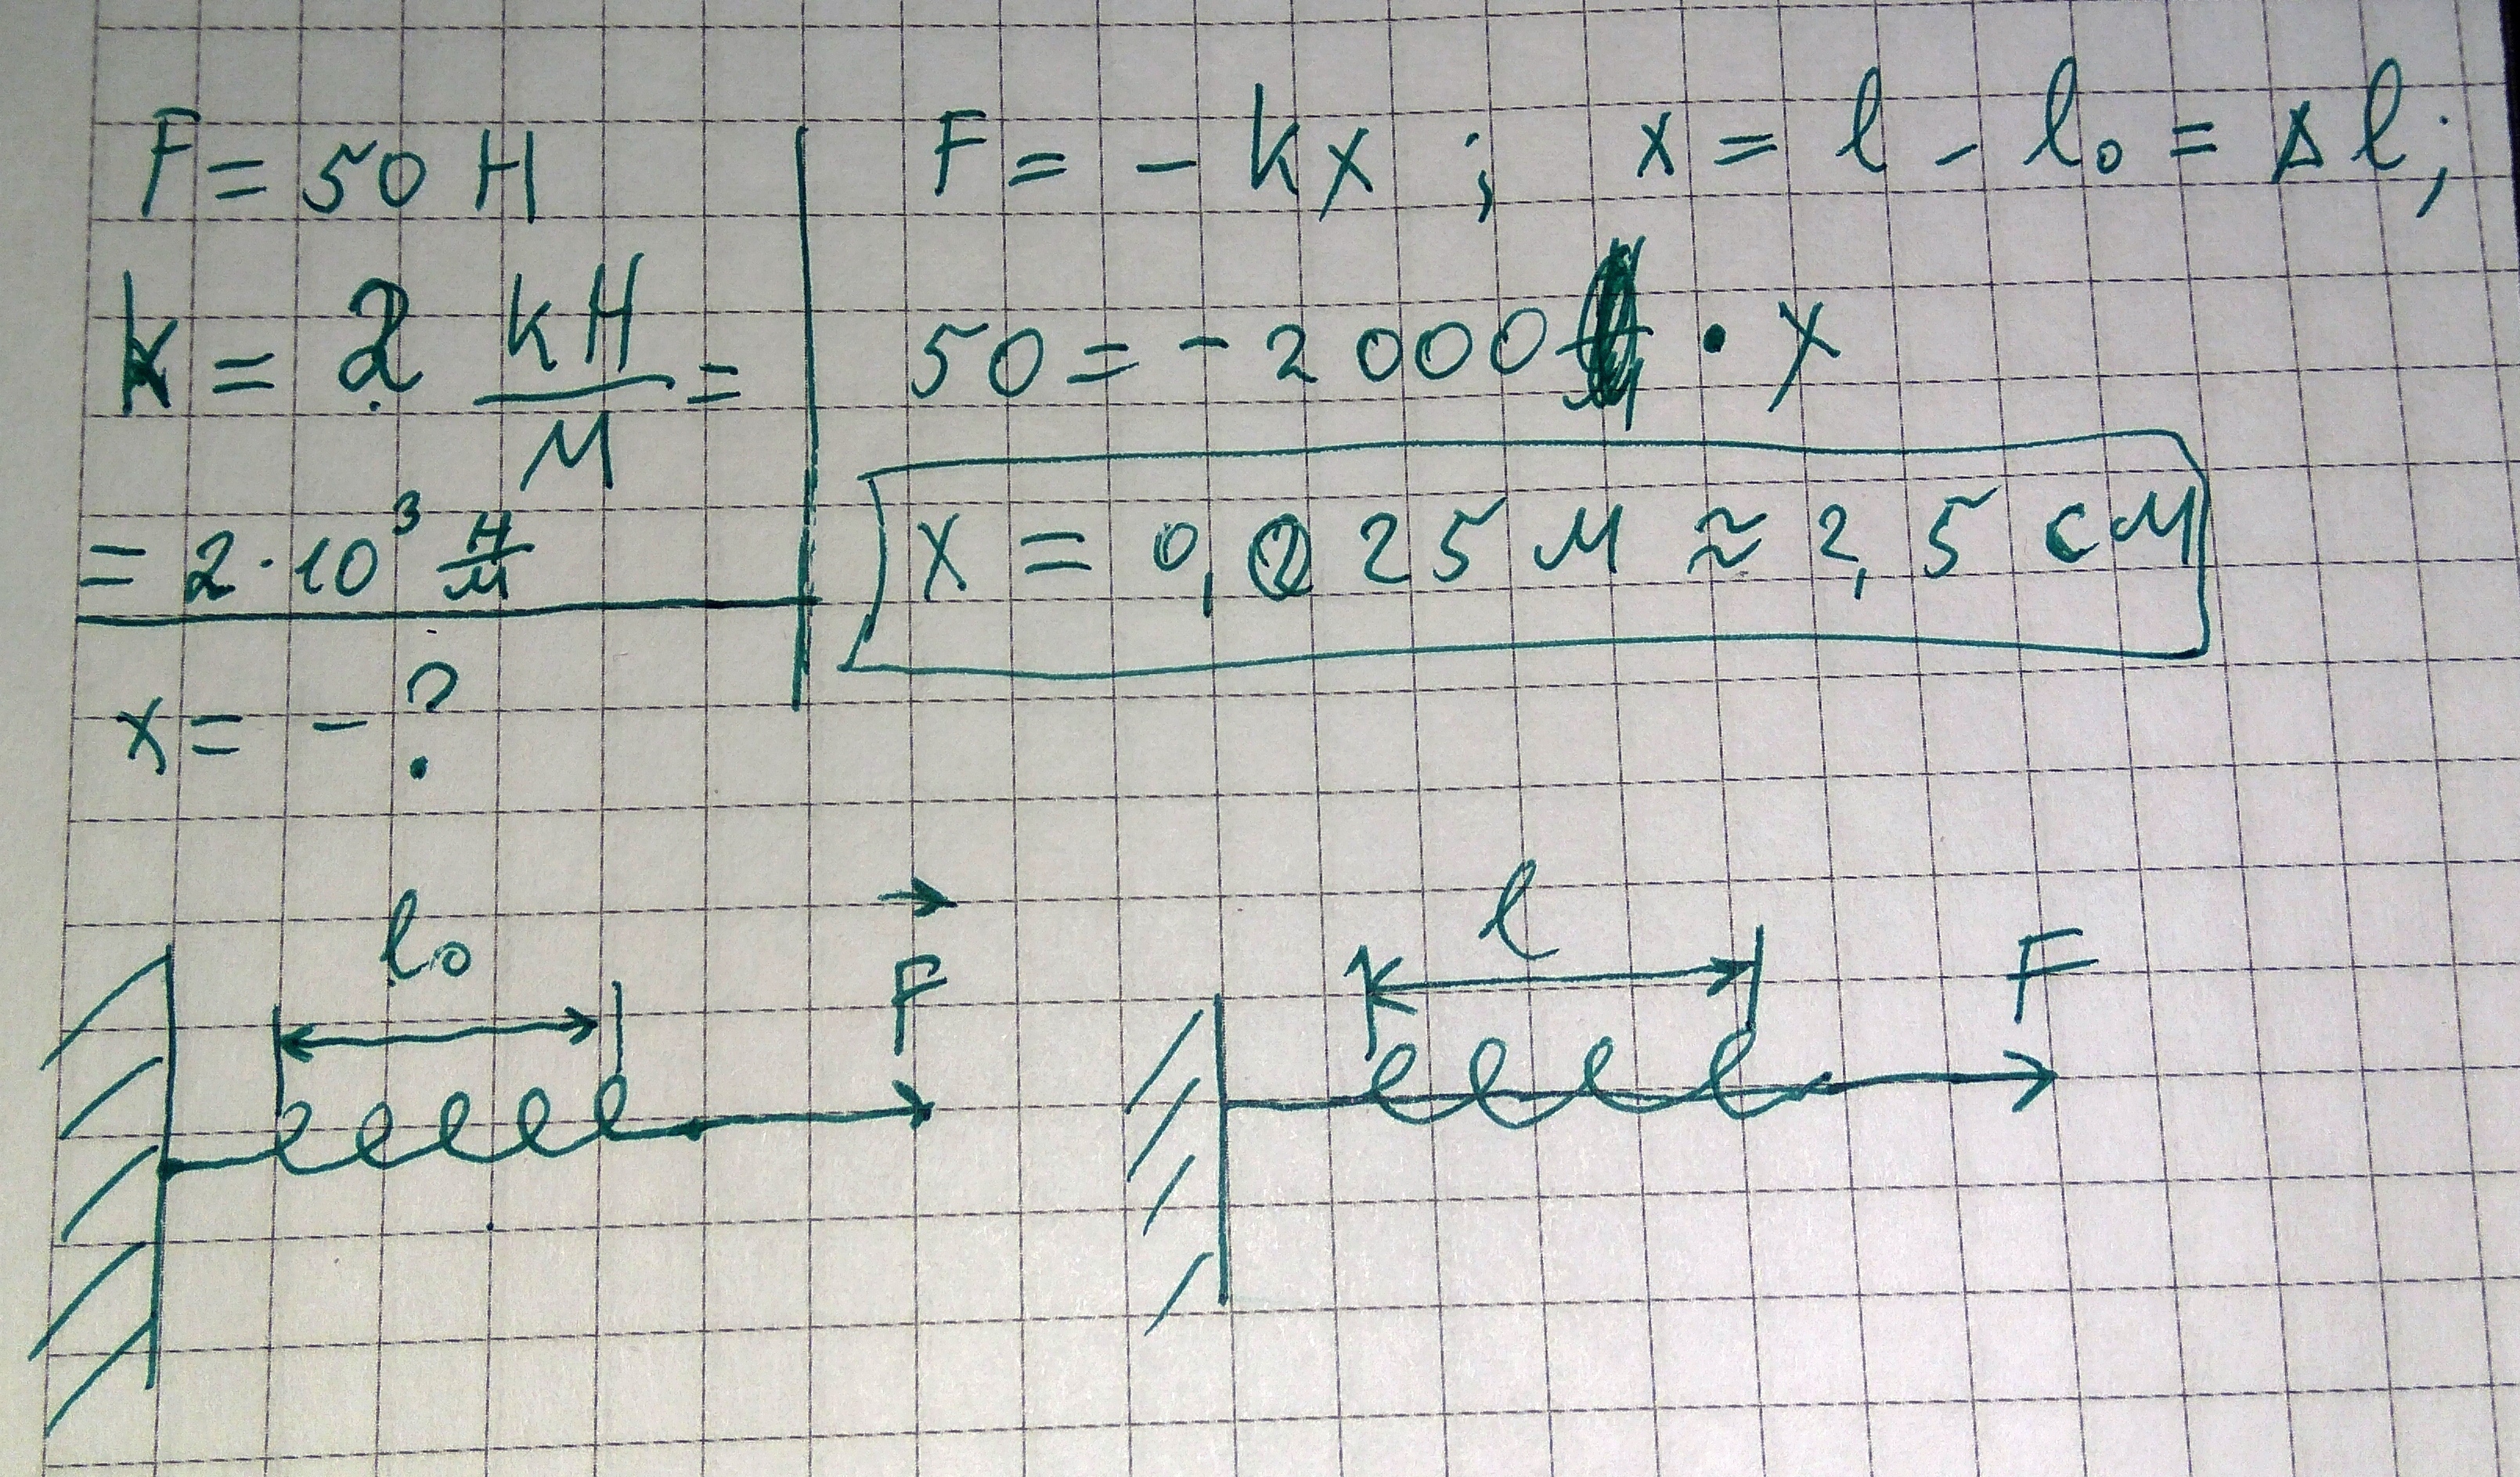 F = 50 Н
k = 2 кН/м =
= 2·10³ Н/м
x = - ?
F = - kx ; x = l - l₀ = Δl;
50 = - 2000 · x
x = 0,025 м ≈ 2,5 см
l₀
F
l
F